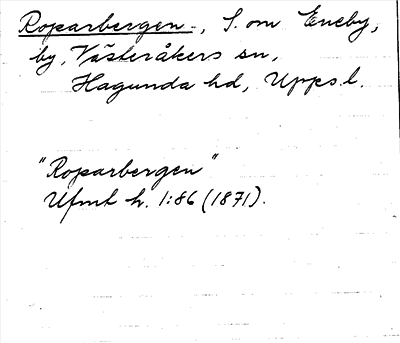 Roparbergen, S. om Eneby,
by, Västeråkers sn,
Hagunda hd, Upps. l.
"Roparbergen"
Ufmt h. 1:86 (1871).